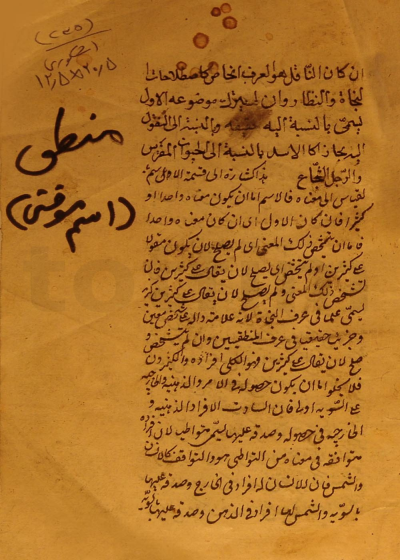 (٢٤٥)
١٢٫٥×٢٠٫٥
منطق
(اسم موقتى)
ان كان الناقل هو العرف الخاص كاصطلاحات
النحاة والنظار وان لم يترك موضوعه الاول
يسمى بالنسبة اليه حقيقة وبالنسبة الى المنقول
اليه مجازا كالاسد بالنسبة الى الحيوان المفترس
والرجل الشجاع هذا اشارة الى قسمة الاسم
بالقياس الى معناه فالاسم اما ان يكون معناه واحدا او
كثيرا فان كان الاول اى ان كان معناه واحدا
فاما ان يتشخص ذلك المعنى اى لم يصلح لان يكون مقولا
على كثيرين او لم يتشخص اى يصلح لان يقال على كثيرين فان
تشخص ذلك المعنى ولم يصلح لان يقال على كثيرين
يسمى علما فى عرف النحاة لانه علامة دالة على شخص معين
وجزئيا حقيقيا فى عرف المنطقيين وان لم يتشخص و
صلح لان يقال على كثيرين فهو الكلى افراده والكثيرون
فلا يخلو اما ان يكون حصوله فى الافراد الذهنية والخارجية
على السوية اولا فان تساوت الافراد الذهنية و
الخارجية فى حصوله وصدقه عليها يسمى متواطيا لان افراده
متوافقة فى معناه من التواطى وهو التوافق كالانسان
والشمس فان للانسان له افراد فى الخارج وصدقه عليها
بالسوية والشمس لها افراد فى الذهن وصدقه عليها بالسوية